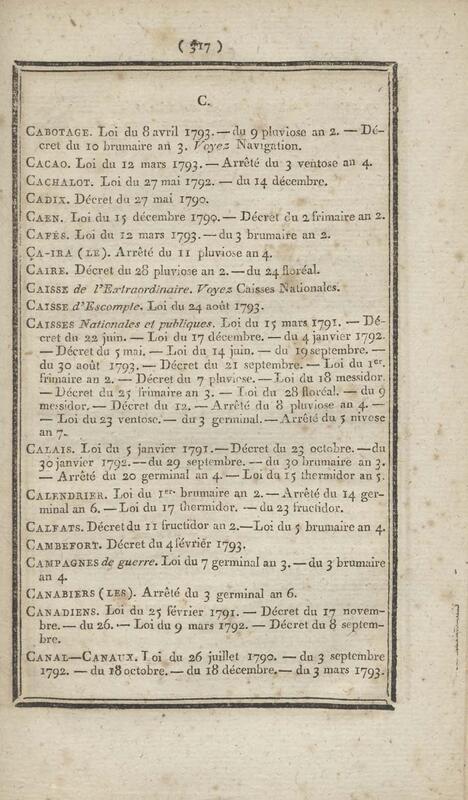 ( 317 )
C.
CABOTAGE. Loi du 8 avril 1793. — du 9 pluviose an 2. — Dé-
cret du 10 brumaire an 3. Voyez Navigation.
CACAO. Loi du 12 mars 1793. — Arrêté du 3 ventose an 4.
CACHALOT. Loi du 27 mai 1792. — du 14 décembre.
CADIX. Décret du 27 mai 1790.
CAEN. Loi du 15 décembre 1790. — Décret du 2 frimaire an 2.
CAFÉS. Loi du 12 mars 1793. — du 3 brumaire an 2.
ÇA-IRA (LE). Arrêté du 11 pluviose an 4.
CAIRE. Décret du 28 pluviose an 2. — du 24 floréal.
CAISSE de l'Extraordinaire. Voyez Caisses Nationales.
CAISSE d'Escompte. Loi du 24 août 1793.
CAISSES Nationales et publiques. Loi du 15 mars 1791. — Dé-
cret du 22 juin. — Loi du 17 décembre. — du 4 janvier 1792.
— Décret du 5 mai. — Loi du 14 juin. — du 19 septembre. —
du 30 août 1793. — Décret du 21 septembre. — Loi du 1er.
frimaire an 2. — Décret du 7 pluviose. — Loi du 18 messidor.
— Décret du 25 frimaire an 3. — Loi du 28 floréal. — du 9
messidor. — Décret du 12. — Arrêté du 8 pluviose an 4. —
— Loi du 23 ventose. — du 3 germinal. — Arrêté du 5 nivose
an 7.
CALAIS. Loi du 5 janvier 1791. — Décret du 23 octobre. — du
30 janvier 1792. — du 29 septembre. — du 30 brumaire an 3.
— Arrêté du 20 germinal an 4. — Loi du 15 thermidor an 5.
CALENDRIER. Loi du 1er. brumaire an 2. — Arrêté du 14 ger-
minal an 6. — Loi du 17 thermidor. — du 23 fructidor.
CALFATS. Décret du 11 fructidor an 2. — Loi du 5 brumaire an 4.
CAMBEFORT. Décret du 4 février 1793.
CAMPAGNES de guerre. Loi du 7 germinal an 3. — du 3 brumaire
an 4.
CANABIERS (LES). Arrêté du 3 germinal an 6.
CANADIENS. Loi du 25 février 1791. — Décret du 17 novem-
bre. — du 26. — Loi du 9 mars 1792. — Décret du 8 septem-
bre.
CANAL—CANAUX. Loi du 26 juillet 1790. — du 3 septembre
1792. — du 18 octobre. — du 18 décembre. — du 3 mars 1793.